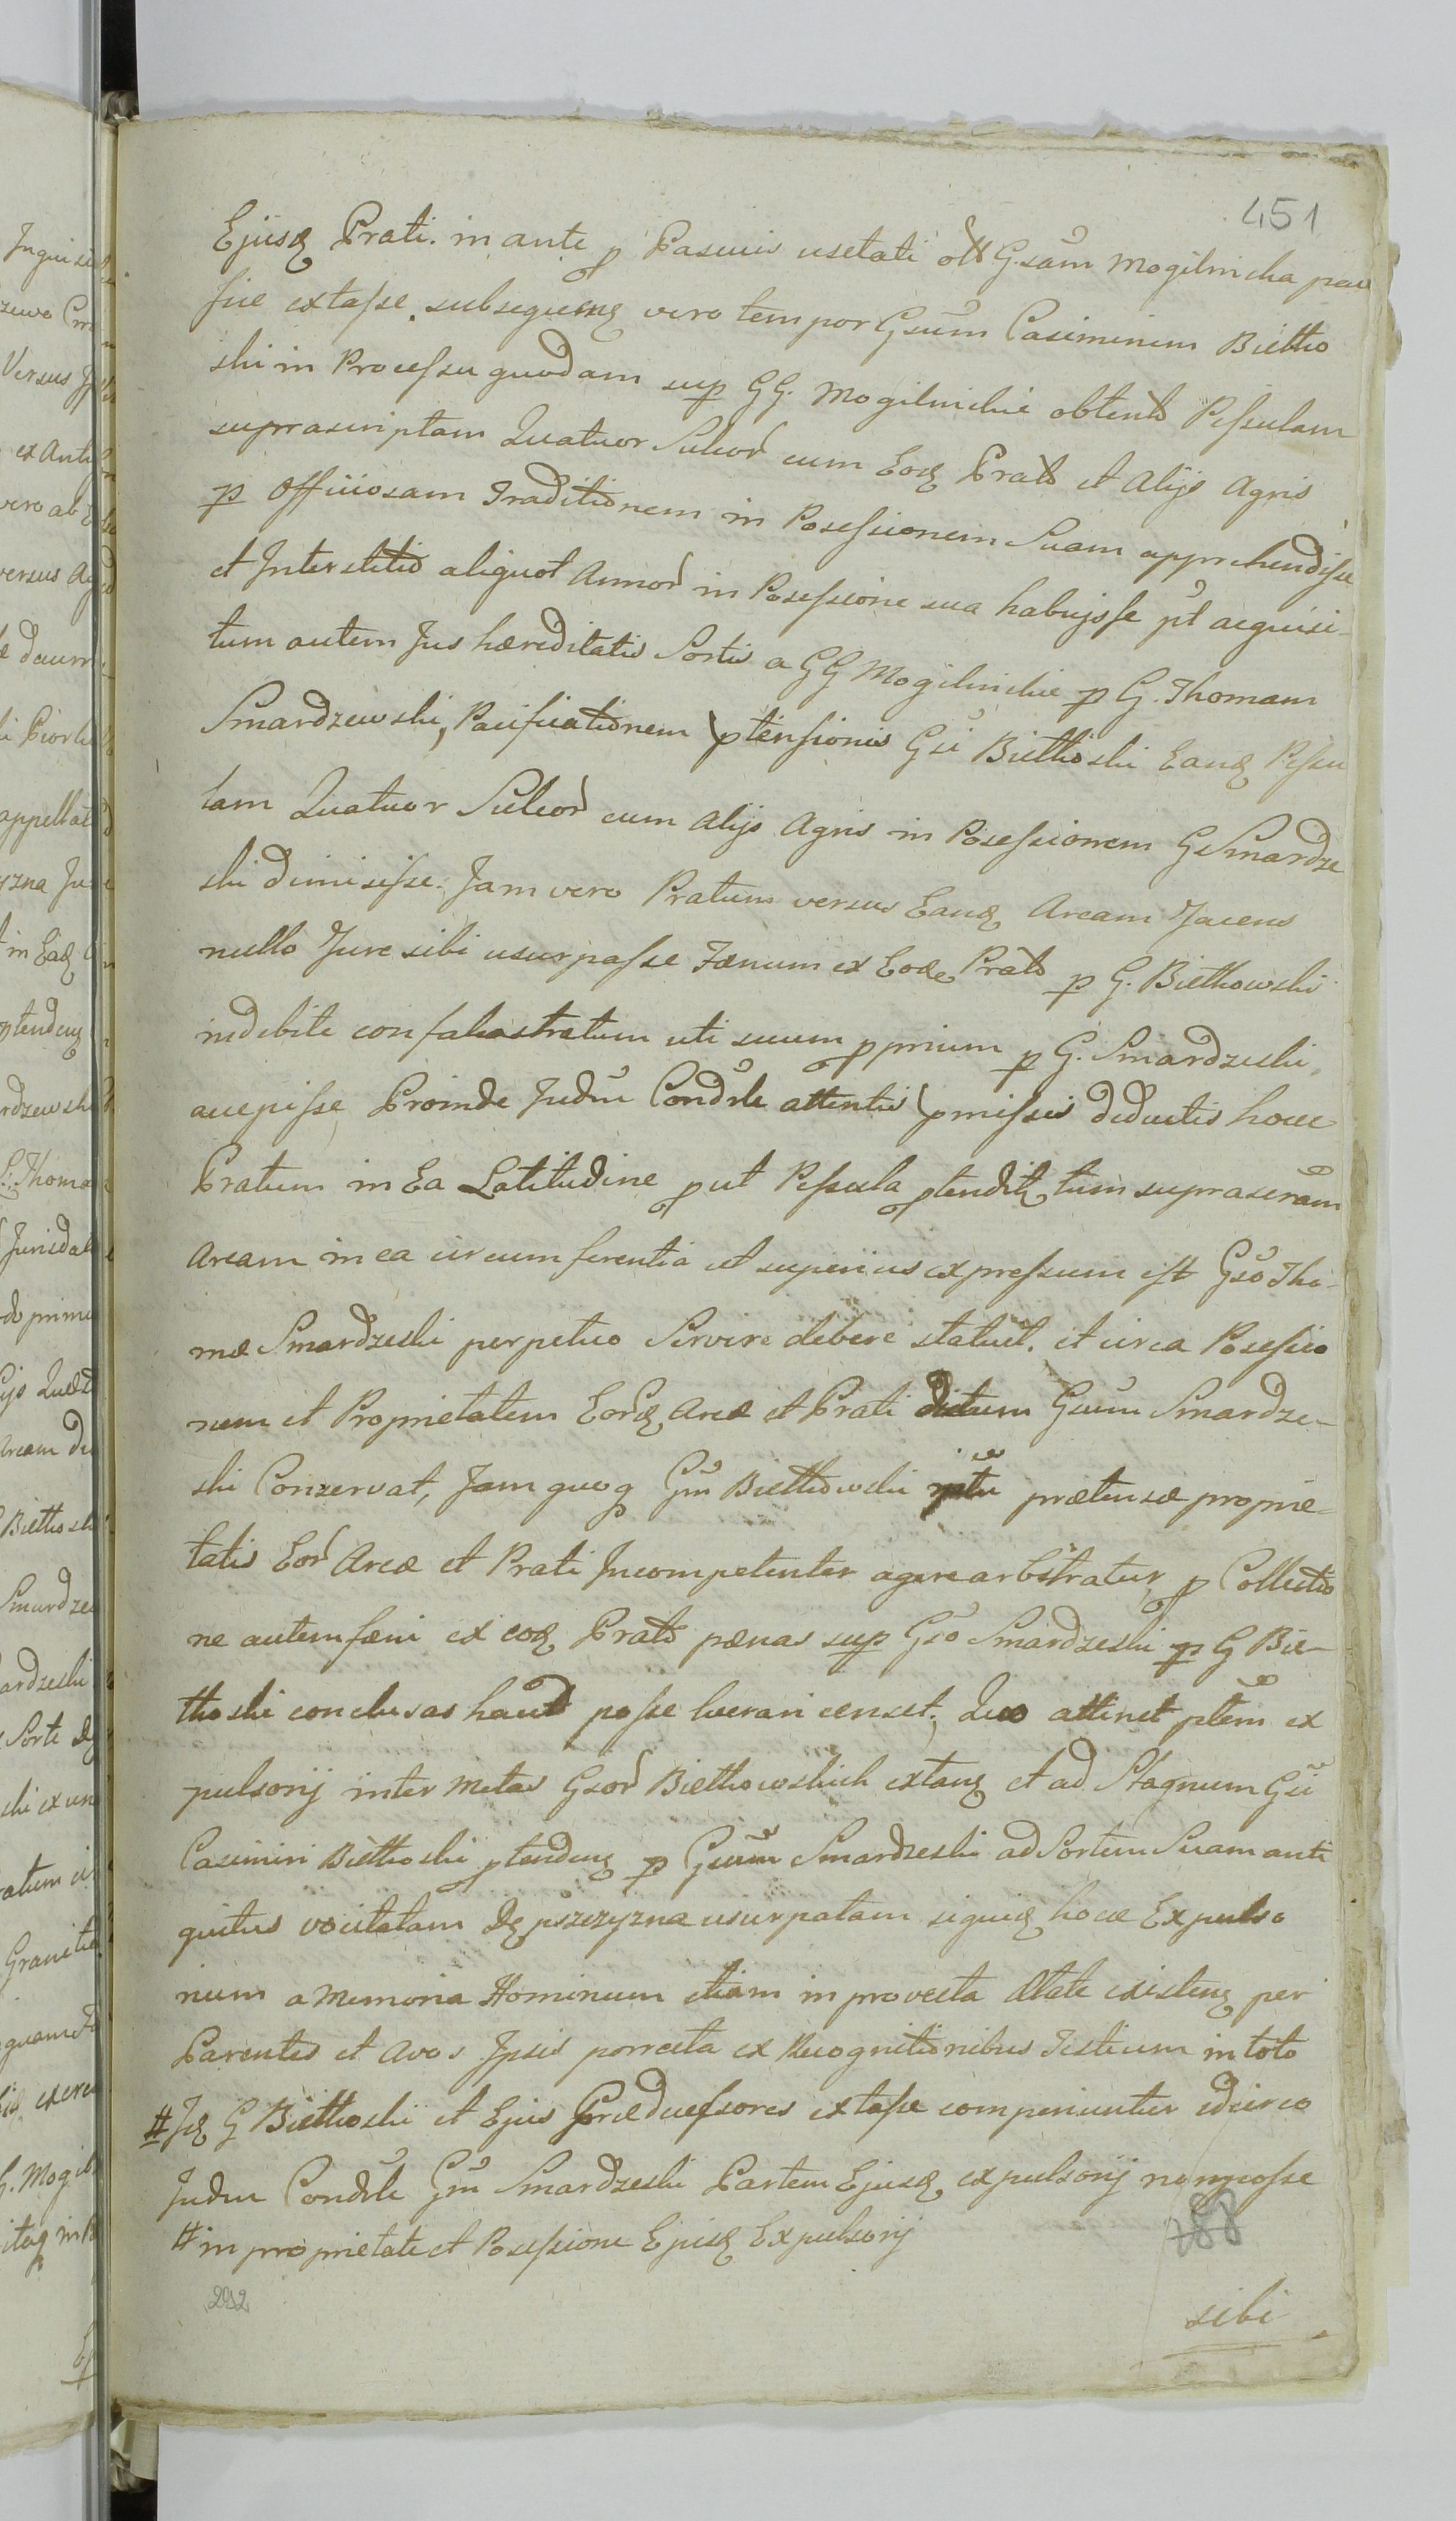 451
Ejusq Prati. in ante p Pascuis usetati ott Gsam Mogilnicka pau
sue extasse. subsequenq vero tempor Gsum Casimirum Bietko
ski in Processu quodam sup GG. Mogilnickie obtento Pessulam
suprascriptam Quatuor Sulcor cum Eoq Prato et Alijs Agris
p Officiosam Traditionem in Posessionem Suam apprehendisse
et Interstitio aliquot Annor in Posessione sua habuisse pt acquisi-
tum autem Jus hæreditatis Sortis a GG Mogilnickie p G. Thomam
Smardzewski, Pacificationem ptensionis Gsi Bietkoski Eanq Pessu
lam Quatuor Sulcor cum Alijs Agris in Posessionem G Smardze
ski dimisisse. Jam vero Pratum versus Eanq Aream Jacens
nullo Jure sibi usurpasse Fænum ex Eoq Prato p G. Bietkowski
indebite confalcastratum uti suum pprium p G. Smardzeski
accepisse, Proinde Judm Condrle attentis pmissis deductis hocce
Pratum in Ea Latitudine put Pessula ptendit tum suprascram
Aream in ea circumferentia ut superius expressum est Gso Tho-
mæ Smardzeski perpetuo Servire debere statuit. et circa Posessio
nem et Proprietatem Eorq Areæ et Prati dictum Gsum Smardze-
ski Conservat, Jam quoq Gm Bietkowski prætensæ proprie-
tatis Eor Areæ et Prati Incompetenter agere arbitratur, p Collectio
ne autem fæni ex eoq Prato pænas sup Gso Smardzeski p G Bie-
tkoski conclusas haud posse lucrari censet. Quo attinet ptem ex
pulsorij inter Metas Gsor Bietkowskich extanq et ad Stagnum Gsi
Casimiri Bietkoski ptendenq p Gsum Smardzeski ad Sortem Suam anti
quitus vocitatam Dępszczyzna usurpatam siquidq hocce Expulso
rium a Memoria Hominum etiam in provecta Ætate existenq per
Parentes et Avos Ipsis porrecta ex Recognitionibus Testium in toto
# Jq G Bietkoski et Ejus Prædecessores extasse comperiuntur idcirco
Judm Condrle Gm Smardzeski Partem Ejusq expulsorij non posse
# in proprietate et Posessione Ejusq Expulsorij
292
sibi